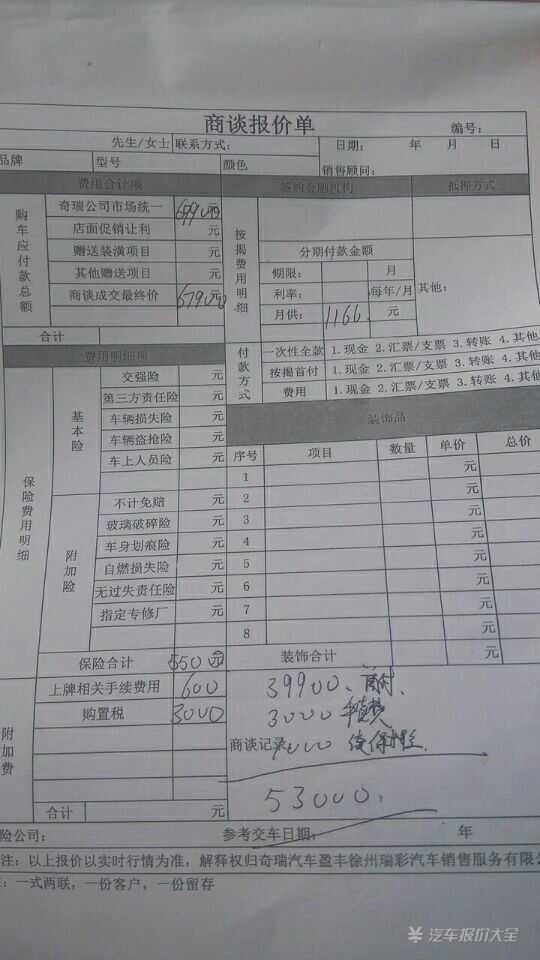 商谈报价单 编号：
先生/女士 联系方式： 日期： 年 月 日
品牌 型号 颜色 销售顾问：
费用合计项 签约金融机构 抵押方式
购车应付款总额 奇瑞公司市场统一 69900元
店面促销让利 元
赠送装潢项目 元
其他赠送项目 元
商谈成交最终价 67900元
合计
按揭费用明细
分期付款金额
期限： 月
利率： 每年/月
月供： 1166. 元
其他：
付款方式 一次性全款 1.现金 2.汇票/支票 3.转账 4.其他
按揭首付 1.现金 2.汇票/支票 3.转账 4.其他
费用 1.现金 2.汇票/支票 3.转账 4.其他
费用明细项
保险费用明细
基本险
交强险 元
第三方责任险 元
车辆损失险 元
车辆盗抢险 元
车上人员险 元
附加险
不计免赔 元
玻璃破碎险 元
车身划痕险 元
自燃损失险 元
无过失责任险 元
指定专修厂 元
保险合计 5500元
装饰品
序号 项目 数量 单价 总价
1 元
2 元
3 元
4 元
5 元
6 元
7 元
8 元
装饰合计 元
附加费
上牌相关手续费用 600
购置税 3000
合计 元
39900. 首付.
3000
商谈记录
53000.
险公司： 参考交车日期： 年
注：以上报价以实时行情为准，解释权归奇瑞汽车盈丰徐州瑞彩汽车销售服务有限公
：一式两联，一份客户，一份留存
汽车报价大全